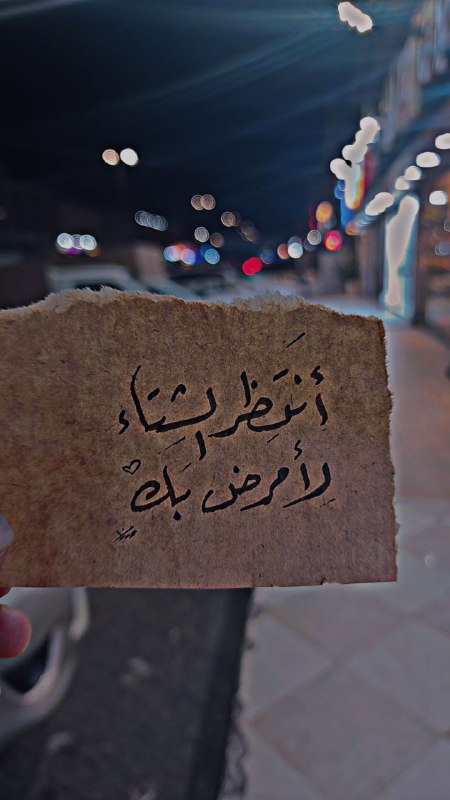 أَنتَظر الشتَاء
لِأمرض بَكْ